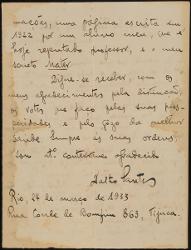 mações, uma página escrita em
1922 por um alumno meu, que é
hoje reputado professor, e o meu
soneto Mater.
Digne-se receber, com os
meus agradecimentos pela distincção,
os votos que faço pelas suas pros-
peridades e pelo gozo da melhor
saude. Sempre ás suas ordens,
seu
Rio, 24 de março de 1933
Rua Conde de Bomfim 863, Tijuca.